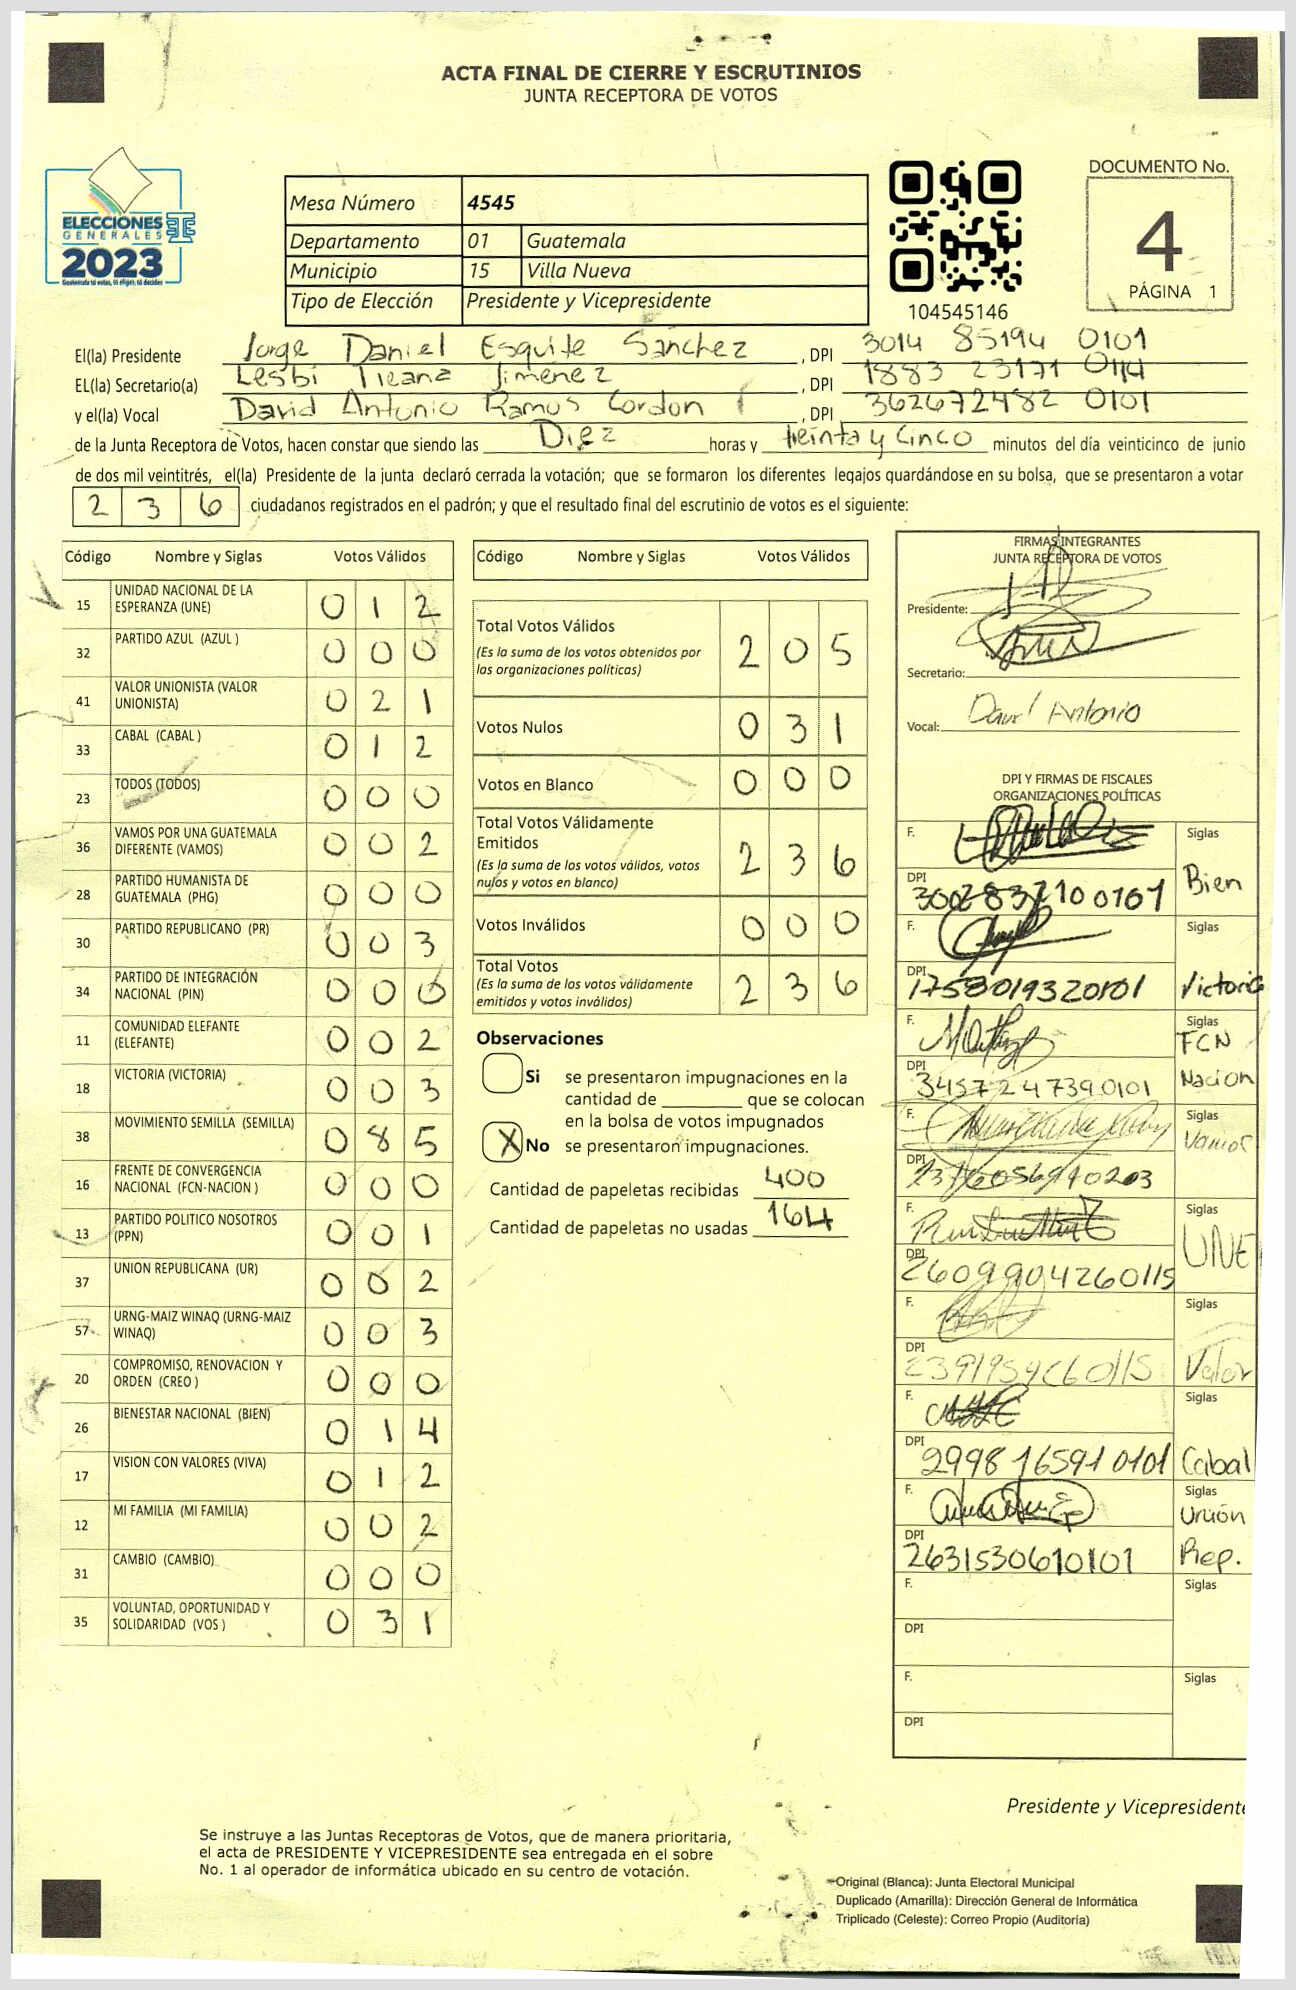 ACTA FINAL DE CIERRE Y ESCRUTINIOS
JUNTA RECEPTORA DE VOTOS
ELECCIONES
GENERALES
2023
Guatemala tú votas, tú eliges, tú decides
Mesa Número 4545
Departamento 01 Guatemala
Municipio 15 Villa Nueva
Tipo de Elección Presidente y Vicepresidente
104545146
DOCUMENTO No.
4
PÁGINA 1
El(la) Presidente Jorge Daniel Esquite Sánchez, DPI 3014 85194 0101
EL(la) Secretario(a) Lesbi Ileana Jimenez, DPI 1883 23171 0114
y el(la) Vocal David Antonio Ramos Cordon, DPI 362672482 0101
de la Junta Receptora de Votos, hacen constar que siendo las Diez horas y treinta y cinco minutos del día veinticinco de junio
de dos mil veintitrés, el(la) Presidente de la junta declaró cerrada la votación; que se formaron los diferentes legajos quardándose en su bolsa, que se presentaron a votar
2 3 6 ciudadanos registrados en el padrón; y que el resultado final del escrutinio de votos es el siguiente:
Código Nombre y Siglas Votos Válidos
15 UNIDAD NACIONAL DE LA ESPERANZA (UNE) 0 1 2
32 PARTIDO AZUL (AZUL ) 0 0 0
41 VALOR UNIONISTA (VALOR UNIONISTA) 0 2 1
33 CABAL (CABAL ) 0 1 2
23 TODOS (TODOS) 0 0 0
36 VAMOS POR UNA GUATEMALA DIFERENTE (VAMOS) 0 0 2
28 PARTIDO HUMANISTA DE GUATEMALA (PHG) 0 0 0
30 PARTIDO REPUBLICANO (PR) 0 0 3
34 PARTIDO DE INTEGRACIÓN NACIONAL (PIN) 0 0 0
11 COMUNIDAD ELEFANTE (ELEFANTE) 0 0 2
18 VICTORIA (VICTORIA) 0 0 3
38 MOVIMIENTO SEMILLA (SEMILLA) 0 8 5
16 FRENTE DE CONVERGENCIA NACIONAL (FCN-NACION ) 0 0 0
13 PARTIDO POLITICO NOSOTROS (PPN) 0 0 1
37 UNION REPUBLICANA (UR) 0 0 2
57 URNG-MAIZ WINAQ (URNG-MAIZ WINAQ) 0 0 3
20 COMPROMISO, RENOVACION Y ORDEN (CREO ) 0 0 0
26 BIENESTAR NACIONAL (BIEN) 0 1 4
17 VISION CON VALORES (VIVA) 0 1 2
12 MI FAMILIA (MI FAMILIA) 0 0 2
31 CAMBIO (CAMBIO) 0 0 0
35 VOLUNTAD, OPORTUNIDAD Y SOLIDARIDAD (VOS ) 0 3 1
Código Nombre y Siglas Votos Válidos
Total Votos Válidos 2 0 5
(Es la suma de los votos obtenidos por
las organizaciones políticas)
Votos Nulos 0 3 1
Votos en Blanco 0 0 0
Total Votos Válidamente
Emitidos 2 3 6
(Es la suma de los votos válidos, votos
nulos y votos en blanco)
Votos Inválidos 0 0 0
Total Votos 2 3 6
(Es la suma de los votos válidamente
emitidos y votos inválidos)
Observaciones
Si se presentaron impugnaciones en la
cantidad de ________ que se colocan
en la bolsa de votos impugnados
X No se presentaron impugnaciones.
Cantidad de papeletas recibidas 400
Cantidad de papeletas no usadas 164
FIRMAS INTEGRANTES
JUNTA RECEPTORA DE VOTOS
Presidente:
Secretario:
Vocal: David Antonio
DPI Y FIRMAS DE FISCALES
ORGANIZACIONES POLÍTICAS
F. Siglas
DPI Bien
F. Siglas
DPI 1758019320101 Victoria
F. Siglas
FCN
DPI 3457247390101 Nacion
F. Siglas
Vamos
DPI
F. Siglas
UNE
DPI 2609904260115
F. Siglas
DPI Valor
F. Siglas
DPI 2998 16591 0101 Cabal
F. Siglas
Unión
DPI 2631530610101 Rep.
F. Siglas
DPI
F. Siglas
DPI
Presidente y Vicepresidente
Se instruye a las Juntas Receptoras de Votos, que de manera prioritaria,
el acta de PRESIDENTE Y VICEPRESIDENTE sea entregada en el sobre
No. 1 al operador de informática ubicado en su centro de votación.
Original (Blanca): Junta Electoral Municipal
Duplicado (Amarilla): Dirección General de Informática
Triplicado (Celeste): Correo Propio (Auditoría)